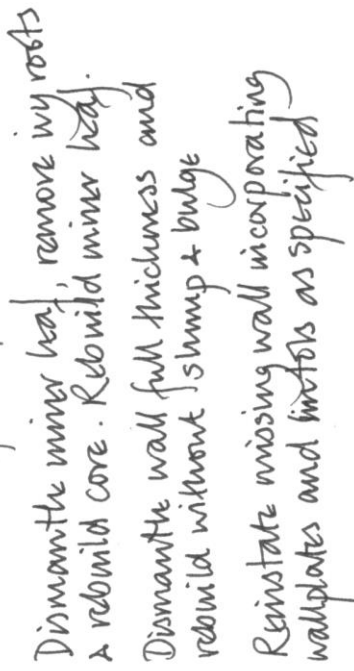 Dismantle inner leaf, remove ivy roots
& rebuild core. Rebuild inner leaf.
Dismantle wall full thickness and
rebuild without slump & bulge
Reinstate missing wall incorporating
wallplates and lintols as specified